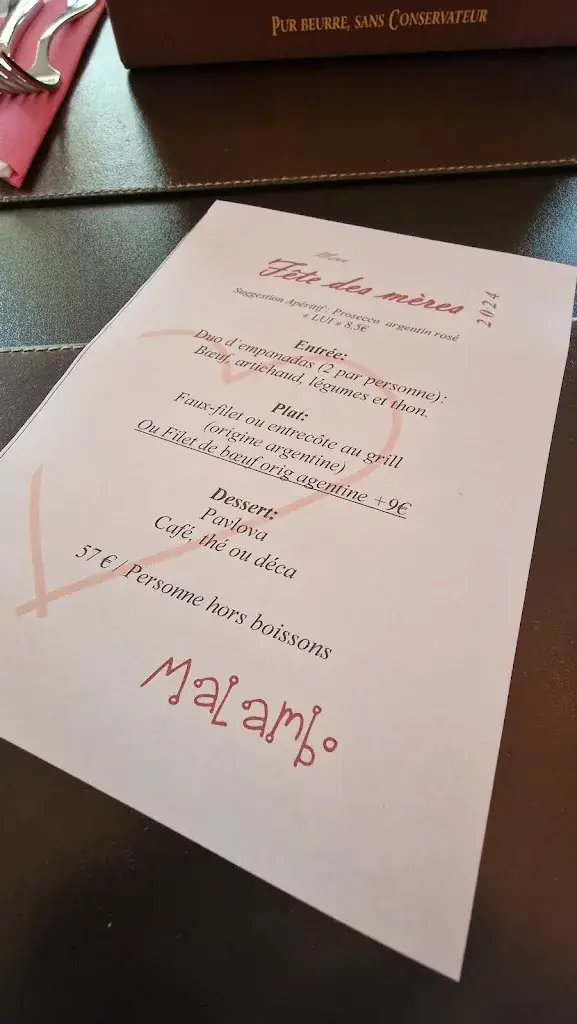 PUR BEURRE, SANS CONSERVATEUR
Menu
Fête des mères
2024
Suggestion Apéritif : Prosecco argentin rosé
« LUI » 8.5€
Entrée:
Duo d'empanadas (2 par personne):
Bœuf, artichaud, légumes et thon.
Plat:
Faux-filet ou entrecôte au grill
(origine argentine)
Ou Filet de bœuf orig agentine +9€
Dessert:
Pavlova
Café, thé ou déca
57 € / Personne hors boissons
Malambo